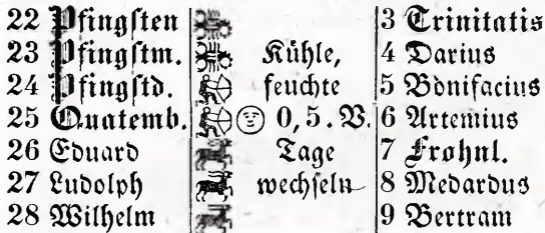 22 Pfingſten 3 Trinitatis
23 Pfingſtm. Kühle, 4 Darius
24 Pfingſtd. feuchte 5 Bonifacius
25 Quatemb. 0,5. V. 6 Artemius
26 Eduard Tage 7 Frohnl.
27 Ludolph wechſeln 8 Medardus
28 Wilhelm 9 Bertram